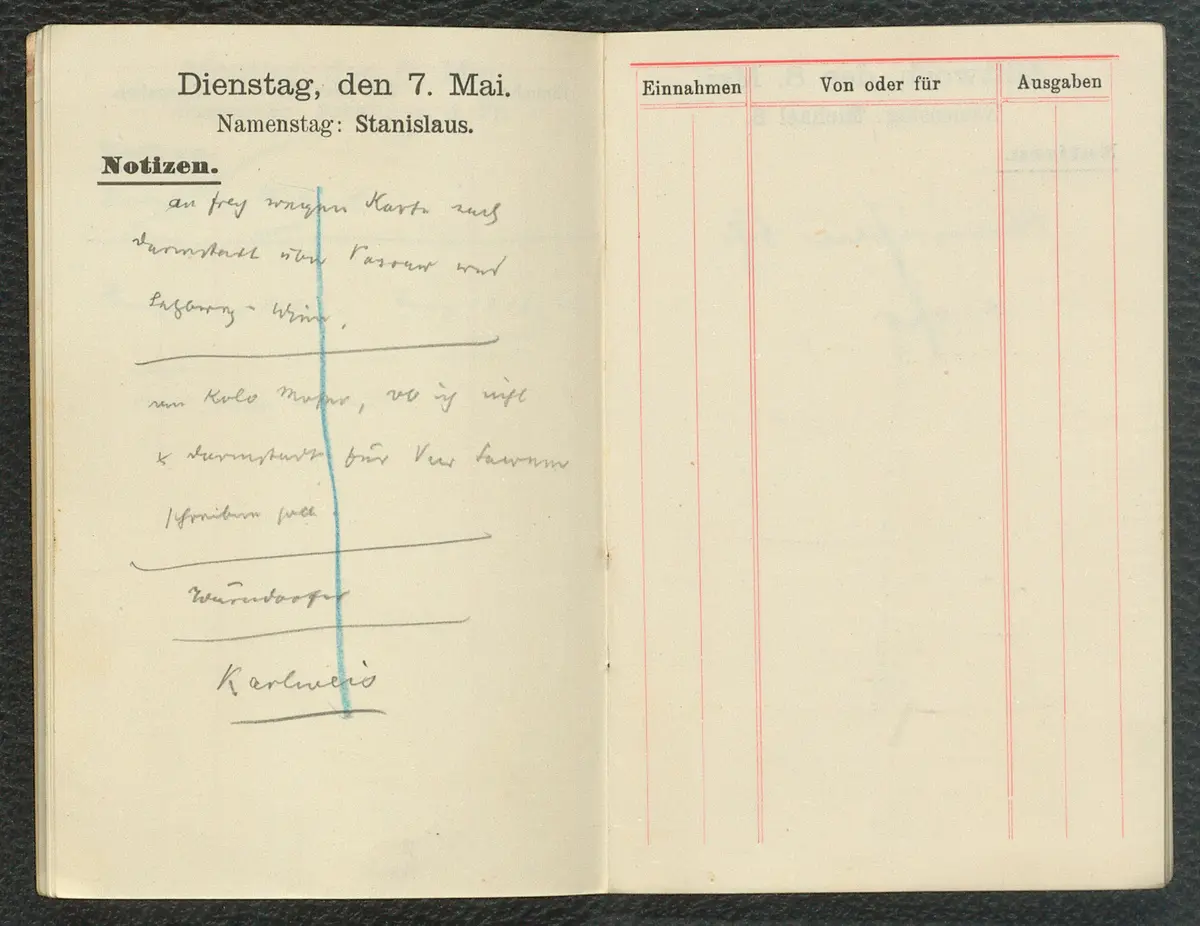 Dienstag, den 7. Mai.
Namenstag: Stanislaus.
Notizen.
an Frey wegen Karte nach
Darmstadt über Passau und
Salzburg - Wien.
von Kolo Moser, ob ich nicht
Darmstadt für Ver Sacrum
schreiben soll
Wärndorfer
Karlweis
Einnahmen
Von oder für
Ausgaben